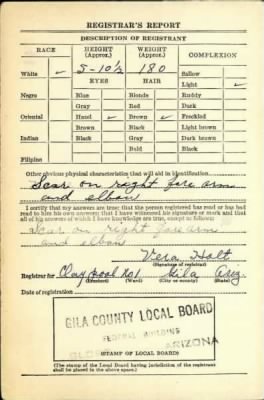 REGISTRAR'S REPORT
DESCRIPTION OF REGISTRANT
RACE HEIGHT (Approx.) WEIGHT (Approx.) COMPLEXION
White ✓ 5-10½ 180 Sallow
EYES HAIR Light ✓
Negro Blue Blonde Ruddy
Gray Red Dark
Oriental Hazel ✓ Brown ✓ Freckled
Brown Black Light brown
Indian Black Gray Dark brown
Bald Black
Filipino
Other obvious physical characteristics that will aid in identification
Scar on right fore arm
and elbow
I certify that my answers are true; that the person registered has read or has had
read to him his own answers; that I have witnessed his signature or mark and that
all of his answers of which I have knowledge are true, except as follows:
Scar on right forearm
and elbow
Vera Holt
(Signature of registrar)
Registrar for Claypool No 1 Gila Ariz.
(Precinct) (Ward) (City or county) (State)
Date of registration
GILA COUNTY LOCAL BOARD
FEDERAL BUILDING
ARIZONA
(STAMP OF LOCAL BOARD)
(The stamp of the Local Board having jurisdiction of the registrant
shall be placed in the above space.)